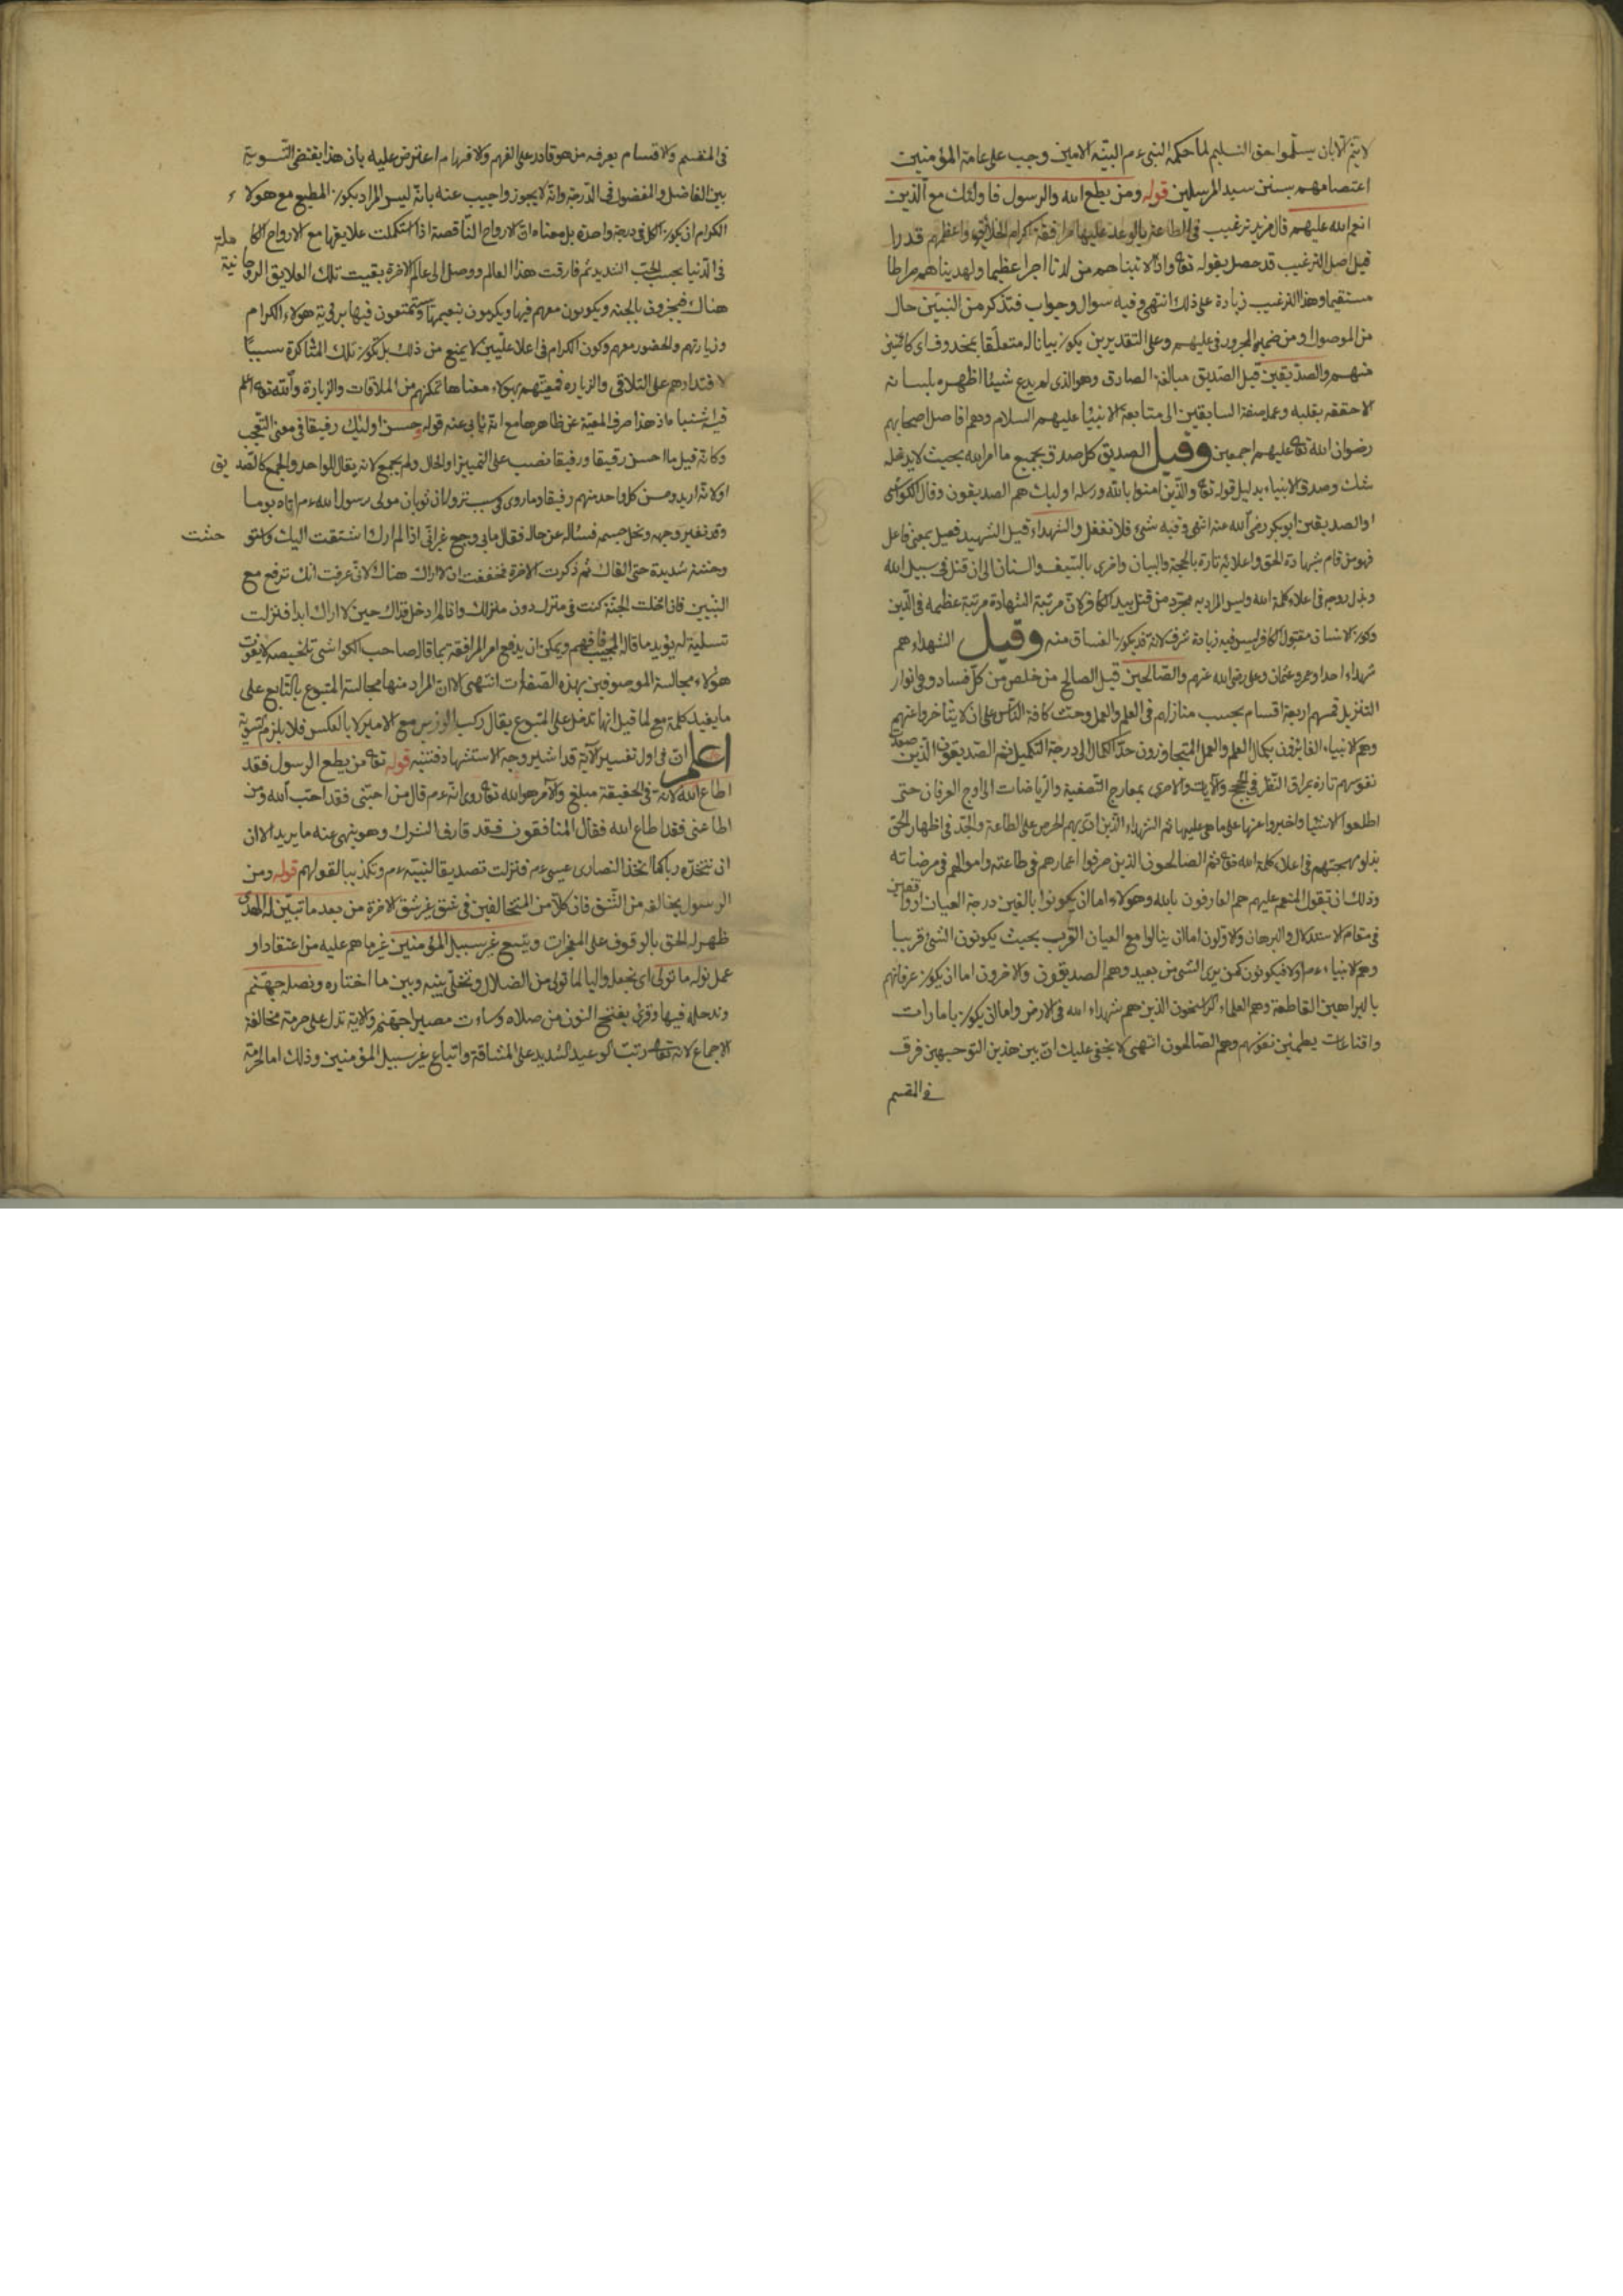 لا يتم الا بان يسلموا حق التسليم لما حكم النبي ءم البتة الامين وجب على عامة المؤمنين
اعتصامهم بسنن سيد المرسلين قوله ومن يطع الله والرسول فاولئك مع الذين
انعم الله عليهم قال مزيد ترغيب في الطاعة بالوعد عليها مرافقة اكرم الخلائق واعظمهم قدرا
قيل اصل الترغيب قد حصل بقوله تع واذا لاتيناهم من لدنا اجرا عظيما ولهديناهم صراطا
مستقيما وهذا الترغيب زيادة على ذلك انتهى وفيه سوال وجواب فتذكر من النبيين حال
من الموصول او من ضميره المجرور في عليهم وعلى التقديرين يكون بيانا له متعلقا بمحذوف اي كائنين
منهم والصديقين قيل الصديق مبالغة الصادق وهو الذي لم يدع شيئا اظهره بلسانه
الا حققه بقلبه وعمله صفة السابقين الى متابعة الانبيا عليهم السلام وهم افاضل اصحابهم
رضوان الله تع عليهم اجمعين وقيل الصديق كل صدق بجميع ما امر الله بحيث لا يدخله
شك وصدق الانبياء بدليل قوله تع والذين امنوا بالله ورسله اوليك هم الصديقون وقال الكواشي
او الصديقين ابو بكر رضي الله عنه انتهى وفيه شيء فلا تغفل والشهداء قيل الشهيد فعيل بمعنى فاعل
فهو من قام بشهادة الحق واعلائه تارة بالحجة والبيان واخرى بالسيف والسنان الى ان قتل في سبيل الله
وبذل روحه في اعلاء كلمة الله وليس المراد به مجرد من قتل بيد الكافر لان مرتبة الشهادة مرتبة عظيمة في الدين
وكون الانسان مقتول الكافر ليس فيه زيادة شرف لانه قد يكون الفساق منه وقيل الشهداء هم
شهداء احد او عمر وعثمان وعلى رضي الله عنهم والصالحين قيل الصالح من خلص من كل فساد وفي انوار
التنزيل قسمهم اربعة اقسام بحسب منازلهم في العلم والعمل وحث كافة الناس على ان لا يتاخروا عنهم
وهم الانبياء الفائزون بكمال العلم والعمل المتجاوزون حد الكمال الى درجة التكميل ثم الصديقون الذين صعدت
نفوسهم تارة بمراقى النظر في الحجج والآيات والاخرى بمعارج التصفية والرياضات الى اوج العرفان حتى
اطلعوا الاشيا واخبروا عنها على ما هي عليها ثم الشهداء الذين ادى بهم الحرص على الطاعة والجد في اظهار الحق
بذلو مهجتهم في اعلاء كلمة الله تع ثم الصالحون الذين صرفوا اعمارهم في طاعته واموالهم في مرضاته
وذلك ان تقول المنعم عليهم هم العارفون بالله وهولاء اما ان يكونوا بالغين درجة العيان او واقفين
في مقام الاستدلال والبرهان والاولون اما ان ينالوا مع العيان القرب بحيث يكونون الشئ قريبا
وهم الانبياء ءم او لا فيكونون كمن يرى الشئ من بعيد وهم الصديقون والاخرون اما ان يكون عرفانهم
بالبراهين القاطعة وهم العلماء الراسخون الذين هم شهداء الله في الارض واما ان يكون بامارات
واقناعات يطمئن نفوسهم وهم الصالحون انتهى لا يخفى عليك ان بين هذين التوجيهين فرق
في القسم
في المقسم والاقسام يعرفه من هو قادر على الفهم والافهام اعترض عليه بان هذا يقتضى التسوية
بين الفاضل والمفضول في الدرجة وانه لا يجوز واجيب عنه بانه ليس المراد بكون المطيع مع هولاء
الكرام ان يكون الكل في درجة واحدة بل معناه ان الارواح الناقصة اذا استكملت علايقها مع الارواح الكاملة
في الدنيا بحسب الحب الشديد ثم فارقت هذا العالم ووصل الى عالم الاخرة بقيت تلك العلايق الروحانية
هناك فيجزون بالجنة ويكونون معهم فيها ويكرمون بنعيمها ويستمتعون فيها برؤية هولاء الكرام
وزيارتهم والحضور معهم وكون الكرام في اعلا عليين لا يمنع من ذلك بل يكون تلك المشاكرة سببا
لاقتدارهم على التلاقي والزيارة فمعيتهم بهولاء معناها تمكنهم من الملاقات والزيارة والله تع اعلم
قوله حسن اوليك رفيقا في معنى التعجب
وكانه قيل ما احسن رفيقا ورفيقا نصب على التمييز او الحال ولم يجمع لانه يقال للواحد والجمع كالصديق
او لانه اريد وحسن كل واحد منهم رفيقا وما روى في سبب نزول ان ثوبان مولى رسول الله ءم اتاه يوما
وقد تغير وجهه ونحل جسمه فساله عن حاله فقال ما بي وجع غير اني اذا لم ارك اشتقت اليك واستوحشت
وحشة شديدة حتى القاك ثم ذكرت الاخرة فخفت ان لا اراك هناك لاني عرفت انك ترفع مع
النبيين فان ادخلت الجنة كنت في منزل دون منزلك وان لم ادخل فذاك حين لا اراك ابدا فنزلت
تسلية له يؤيد ما قاله المجيب فافهم ويمكن ان يدفع امر المرافقة بما قال صاحب الكواشي تلخيصه لا يفوت
هؤلاء مجالسة الموصوفين بهذه الصفات انتهى لان المراد منها مجالسة المتبوع بالتابع على
ما يفيد كلمة مع لما قيل انها تدخل على المتبوع يقال ركب الوزير مع الامير لا بالعكس فلا يلزم تسوية
اعلم ان في اول تفسير الآية قد اشير وجه الاستشهاد فتنبه قوله تع من يطع الرسول فقد
اطاع الله لانه في الحقيقة مبلغ والآمر هو الله تع روى انه ءم قال من احبني فقد احب الله ومن
اطاعني فقد اطاع الله فقال المنافقون فقد قارف الشرك وهو ينهى عنه ما يريد الا ان
ان نتخذه ربا كما اتخذ النصارى عيسى ءم فنزلت تصديقا لنبيه ءم وتكذيبا لقولهم قوله ومن
الرسول يخالفه من الشق فان كلا من المتخالفين في شق غير شق الاخرة من بعد ما تبين له الهدى
ظهر له الحق بالوقوف على المعجزات ويتبع غير سبيل المؤمنين غير ما هم عليه من اعتقاد او
عمل نوله ما تولى اى نجعله واليا لما تولى من الضلال ونخلى بينه وبين ما اختاره ونصله جهنم
وندخله فيها وقرئ بفتح النون من صلاه وساءت مصيرا جهنم والآية تدل على حرمة مخالفة
الاجماع لانه تعالى رتب الوعيد الشديد على المشاقة واتباع غير سبيل المؤمنين وذلك اما لحرمة